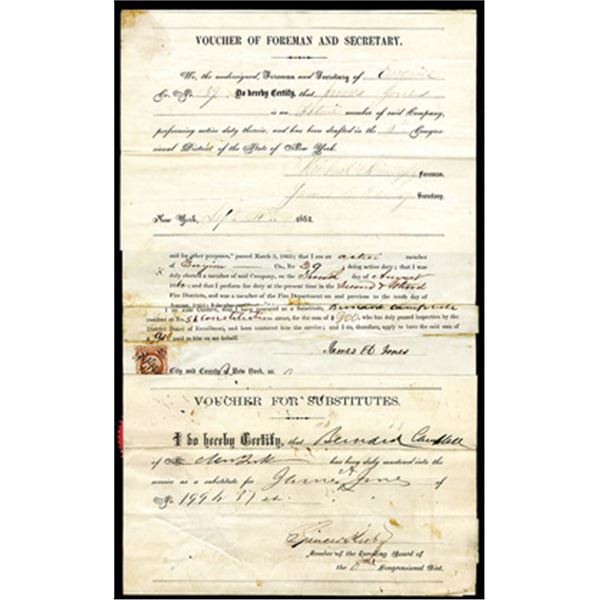 VOUCHER OF FOREMAN AND SECRETARY.
We, the undersigned, Foreman and Secretary of Engine
Co. No. 39 Do hereby Certify, that James Jones
is an Active member of said Company,
performing active duty therein, and has been drafted in the Congres-
sional District of the State of New York.
Foreman.
Secretary.
New York, 186
and for other purposes," passed March 3, 1863; that I am an active member
of Engine Co. No 39 doing active duty; that I was
duly elected a member of said Company, on the day of August
186 and that I perform fire duty at the present time in the Second & Third
Fire Districts, and was a member of the Fire Department on and previous to the tenth day of
as a Substitute, Bernard Campbell
resident at No. 5 Constitution street, for the sum of $ 900, who has duly passed inspection by the
District Board of Enrollment, and been mustered into the service; and I do, therefore, apply to have the said sum of
$ 900 paid to him on my behalf.
James H Jones
City and County of New York, ss.
VOUCHER FOR SUBSTITUTES.
I do hereby Certify, that Bernard Campbell
of New York has been duly mustered into the
service as a substitute for James H Jones of
No. 199
Spencer Kirby
Member of the Enrolling Board of
the 8th Congressional Dist.